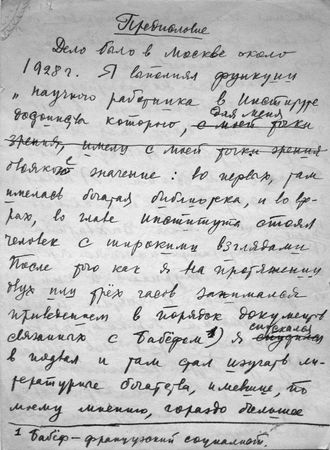 Предисловие
Дело было в Москве около
1928 г. Я выполнял функции
„ научного работника в Институте
достоинства которого, для меня с моей точки
зрения, имели с моей точки зрения
двоякое значение: во первых, там
имелась богатая библиотека, и во вто-
рых, во главе института стоял
человек с широкими взглядами
После того как я на протяжении
двух или трёх часов занимался
приведением в порядок документов
связанных с Бабёфом 1) я спускался
в подвал и там стал изучать ли-
тературные богатства, имевшие, по
моему мнению, гораздо большее
1 Бабёф – французский социалист.